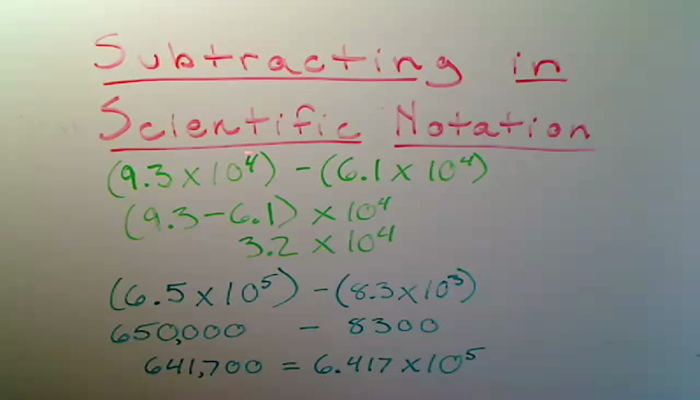 Subtracting in
Scientific Notation
(9.3 × 10⁴) - (6.1 × 10⁴)
(9.3 - 6.1) × 10⁴
3.2 × 10⁴
(6.5 × 10⁵) - (8.3 × 10³)
650,000 - 8300
641,700 = 6.417 × 10⁵